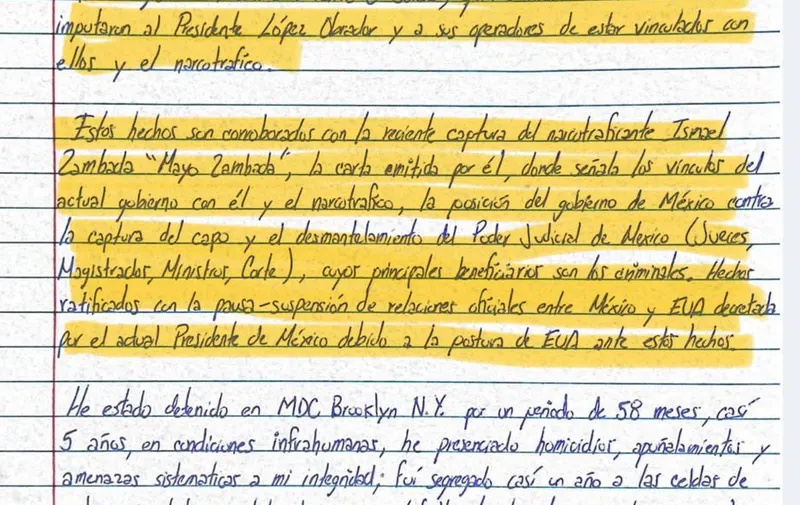 imputaron al Presidente López Obrador y a sus operadores de estar vinculados con
ellos y el narcotrafico.
Estos hechos son corroborados con la reciente captura del narcotraficante Ismael
Zambada "Mayo Zambada", la carta emitida por él, donde señala los vinculos del
actual gobierno con él y el narcotrafico, la posición del gobierno de México contra
la captura del capo y el desmantelamiento del Poder Judicial de Mexico (Jueces,
Magistrados, Ministros, Corte), cuyos principales beneficiarios son los criminales. Hechos
ratificados con la pausa-suspensión de relaciones oficiales entre México y EUA decretada
por el actual Presidente de México debido a la postura de EUA ante estos hechos.
He estado detenido en MDC Brooklyn N.Y. por un periodo de 58 meses, casí
5 años, en condiciones infrahumanas, he presenciado homicidios, apuñalamientos y
amenazas sistematicas a mi integridad; fuí segregado casí un año a las celdas de